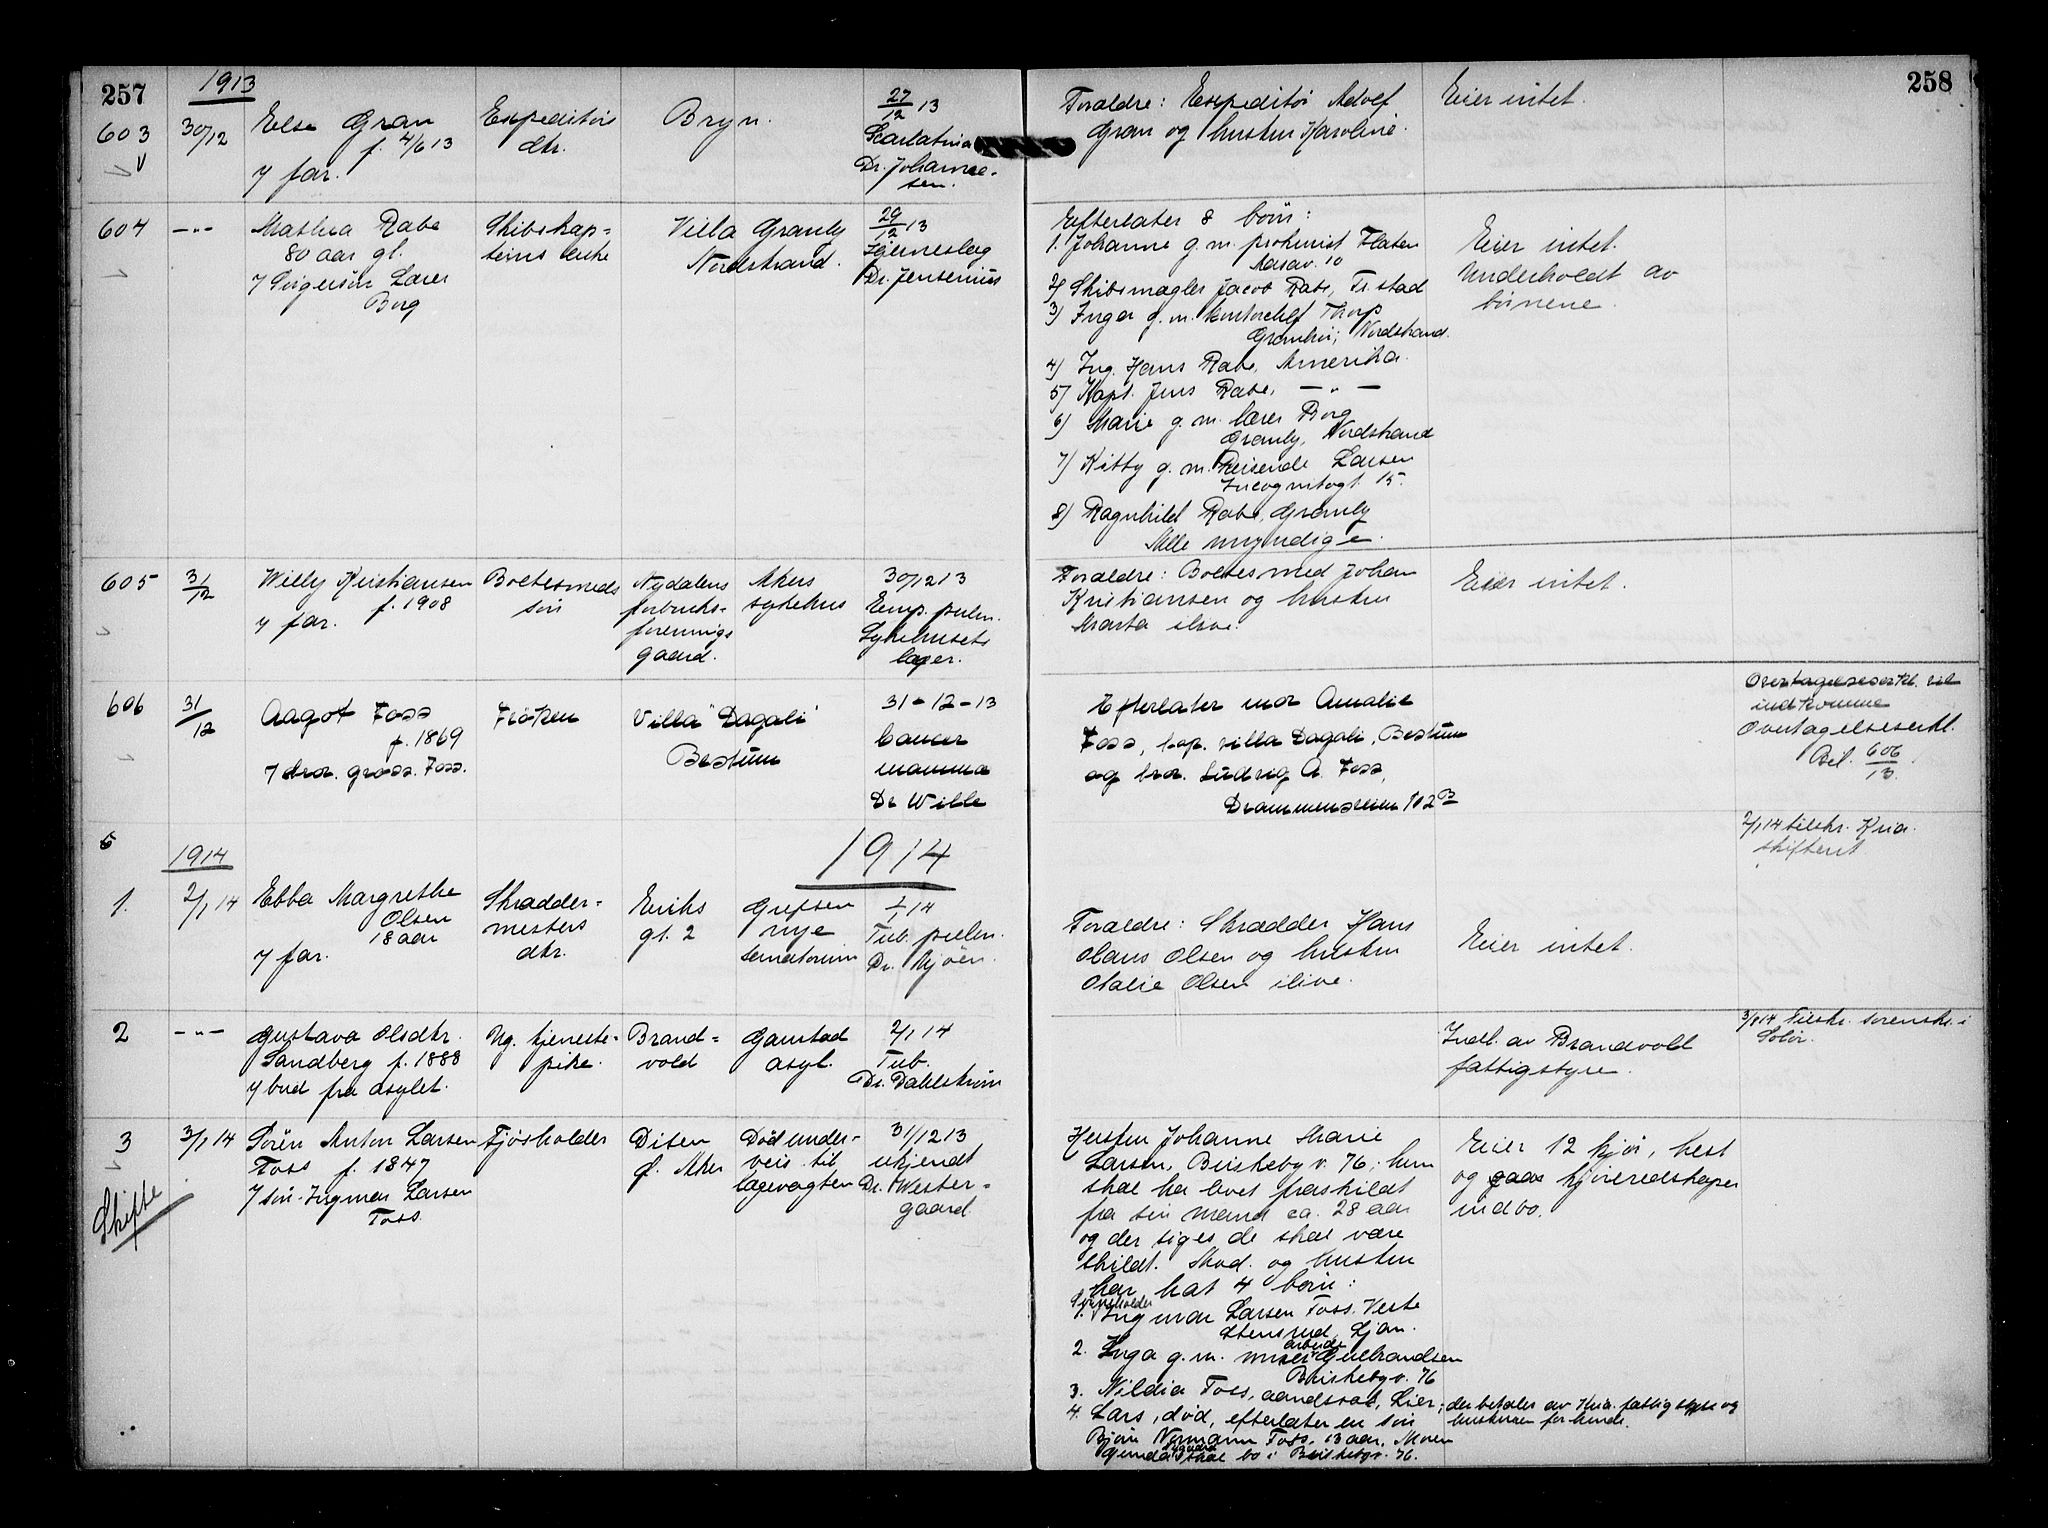 257
1913
603
30/12
Else Gran
f. 4/6 13
7 far.
Expeditør
dtr.
Bryn.
27/12 13
Scarlatina
Dr. Johanne-
sen.
Foraldre: Expeditør Adolf
Gran og hustru Karoline.
Eier intet.
258
604
—"—
Mathea Rabe
80 aar gl.
7 Svigersøn Lærer
Borg
Skibskap-
teins enke
Villa Granly
Nordstrand.
29/12 13
Hjerneslag
Dr. Jensenius
Efterlater 8 børn:
1. Johanne g.m. prokurist Flaten
2) Skibsmægler Jacob Rabe, Fr.stad
3) Inga g.m. kontorchef Thorp
Granhøi, Nordstrand.
4) Ing. Hans Rabe, Amerika.
5) Kapt. Jens Rabe, — " —
6) Marie g.m. lærer Borg
Granly, Nordstrand
7) Kitty g.m. Reisende Larsen
Incognitogt. 15.
8) Ragnhild Rabe, Granly
Alle myndige.
Eier intet.
Underholdt av
børnene.
605
31/12
Willy Kristiansen
f. 1908
7 far.
Boltesmeds
søn
Nydalens
forbruks-
forenings
gaard.
Akers
sykehus
30/12 13
Emp. pulm.
Sykehusets
læger.
Foraldre: Boltesmed Johan
Kristiansen og hustru
Marta ilive.
Eier intet.
606
31/12
Aagot Foss
f. 1869
7 bror. gross. Foss.
Frøken
Villa "Dagali"
Bestum
31-12-13
Cancer
mamma
Dr Wille
Efterlater mor Amalie
Foss, bop. villa Dagali, Bestum
og bror. Ludvig A. Foss,
Drammensveien 102B
Overtagelseserkl. vil
indkomme
Overtagelseserkl.
Bil. 606/13.
5
1914
1914
2/1 14 tilskr. Kria.
skifteret
1.
2/1 14
Ebba Margrethe
Olsen
18 aar
7 far.
Skrædder-
mesters
dtr.
Eriks
gt. 2
Grefsen
nye
sanatorium
1/1 14
Tub. pulm.
Dr. Mjøen.
Foraldre: Skrædder Hans
Olaus Olsen og hustru
Olalie Olsen ilive.
Eier intet.
2
—"—
Gustava Olsdtr.
Sandberg f. 1888
7 bud fra asylet.
Ug. tjeneste-
pike.
Brand-
vold
Gaustad
asyl.
2/1 14
Tub.
Dr. Dahlstrøm
Indl. av Brandvold
fattigstyre.
3/1 14 Tilskr. sorenskr. i
Solør.
3
Skifte
3/1 14
Sørén Anton Larsen
Foss f. 1847
7 søn. Ingman Larsen
Foss.
Fjøsholder
Disen
Ø. Aker
Død under-
veis til
lægevagten
31/12 13
ukjendt
Dr. Wester-
gaard
Hustru Johanne Marie
Larsen, Briskebyv. 76; hun
skal ha levet fraskildt
fra sin mand ca. 28 aar
og der siges de skal være
skildt. Avd. og hustru
har hat 4 børn:
1. Ingman Larsen Foss. Vestre
Stensrud, Ljan.
2. Inga g.m. arbeider Gulbrandsen
Briskebyv. 76
3. Nildia Foss, aandssvak, Lier; der betales av Kria. fattigstyre og
hustruen for hende.
4. Lars, død, efterlater en søn
Bjørn Normann Foss, 13 aar, Moren
Gunda skal bo i Briskebyv. 76.
Eier 12 kjør, hest
og kjøreredskaper
indbo.